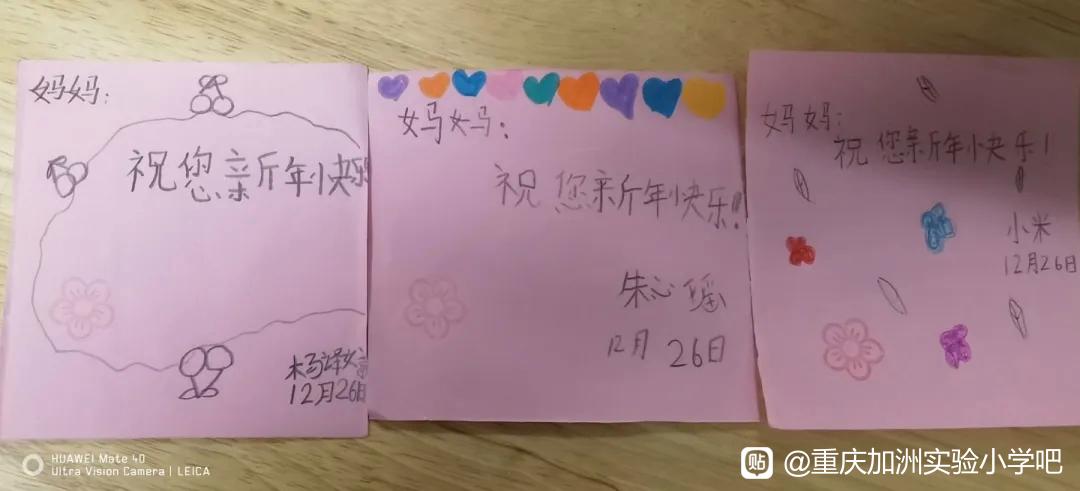 妈妈：
祝您新年快乐
12月26日
妈妈：
祝您新年快乐！！
朱心瑶
12月 26日
妈妈：
祝您新年快乐！
小米
12月26日
HUAWEI Mate 40
Ultra Vision Camera | LEICA
贴 @重庆加洲实验小学吧